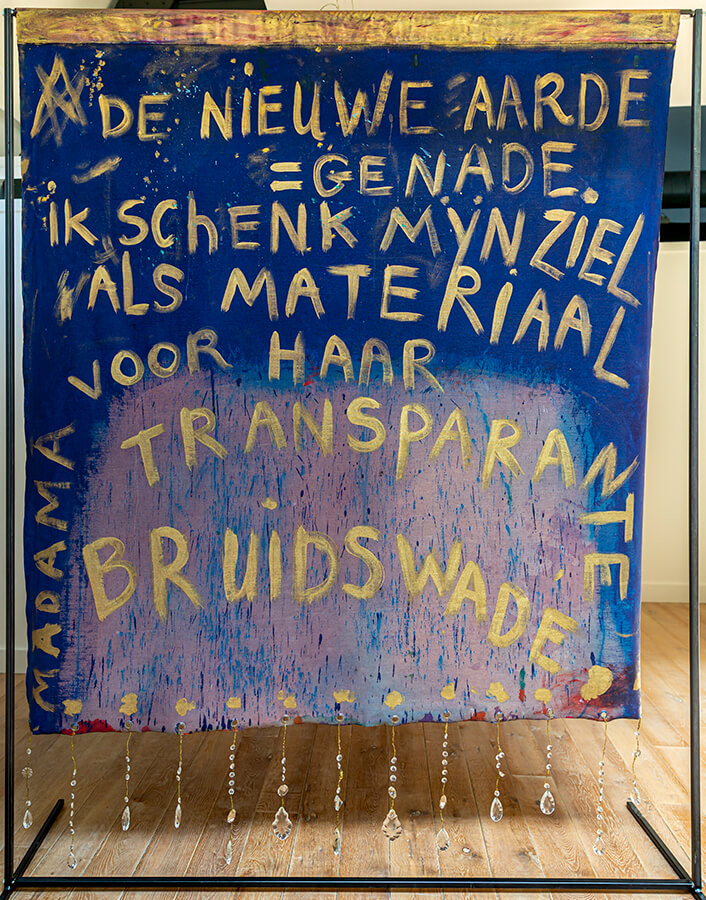 DE NIEUWE AARDE
=GENADE.
iK SChENK MŸN ZIEL
ALS MATERiAAL
VOOR HAAR
TRANSPARANTE
BRUIDSWADE.
MADAMA